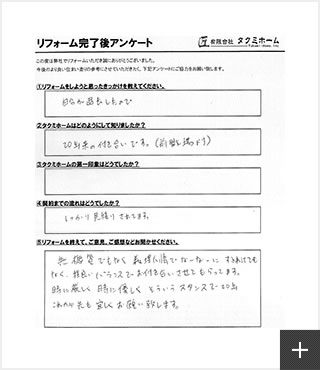 リフォーム完了後アンケート
有限会社 タクミホーム
この度は弊社でリフォームいただき誠にありがとうございました。
今後のより良い住まい造りの参考にさせていただきたく、下記アンケートにご協力をお願い致します。
①リフォームをしようと思ったきっかけを教えてください。
②タクミホームはどのようにして知りましたか？
20年来の付き合いです。
③タクミホームの第一印象はどうでしたか？
④契約までの流れはどうでしたか？
しっかり見積りされてます。
⑤リフォームを終えて、ご意見、ご感想などお聞かせください。
無機質でもなく 義理人情で
なく、程良いバランスでお付き合いさせてもらってます。
時に厳しく 時に優しく そういうスタンスで20年
これから先も宜しくお願い致します。